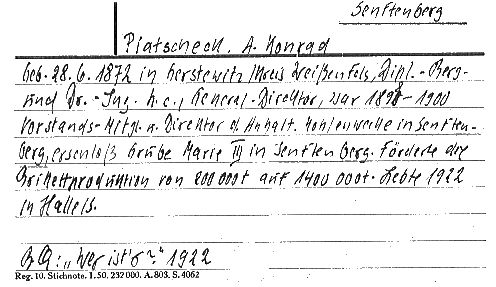 Senftenberg
Piatscheck, A. Konrad
Geb. 28.6.1872 in Gerstewitz/Kreis Weißenfels, Dipl.-Berg-
und Dr.-Ing. h.c., General-Direktor, war 1898-1900
Vorstands-Mitgl. u. Direktor d. Anhalt. Kohlenwerke in Senften-
berg, erschloß Grube Marie III in Senftenberg. Förderte die
Brikettproduktion von 200000t auf 1400000t. Lebte 1922
in Halle/S.
BQ: "Wer ist's?" 1922
Reg. 10. Stichnote. 1.50. 232000. A. 803. S. 4062